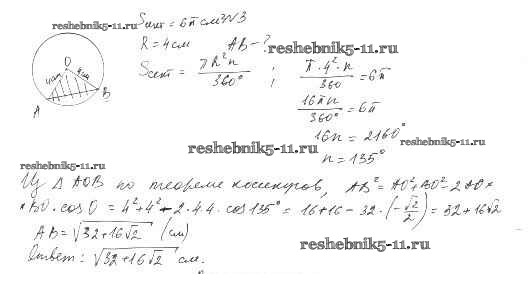 reshebnik5-11.ru
Sсект = 6π см² N3
R = 4см   AB - ?
reshebnik5-11.ru
O
4см   4см
A   B
Sсект = πR²n / 360° ; π·4²·n / 360 = 6π
16πn / 360° = 6π
16n = 2160°
reshebnik5-11.ru
reshebnik5-11.ru
n = 135°
reshebnik5-11.ru
Из Δ AOB по теореме косинусов, AB² = AO² + BO² - 2AO×
×BO·cos O = 4² + 4² - 2·4·4·cos 135° = 16 + 16 - 32·(-√2/2) = 32 + 16√2
AB = √(32 + 16√2) (см)
reshebnik5-11.ru
Ответ: √(32 + 16√2) см.